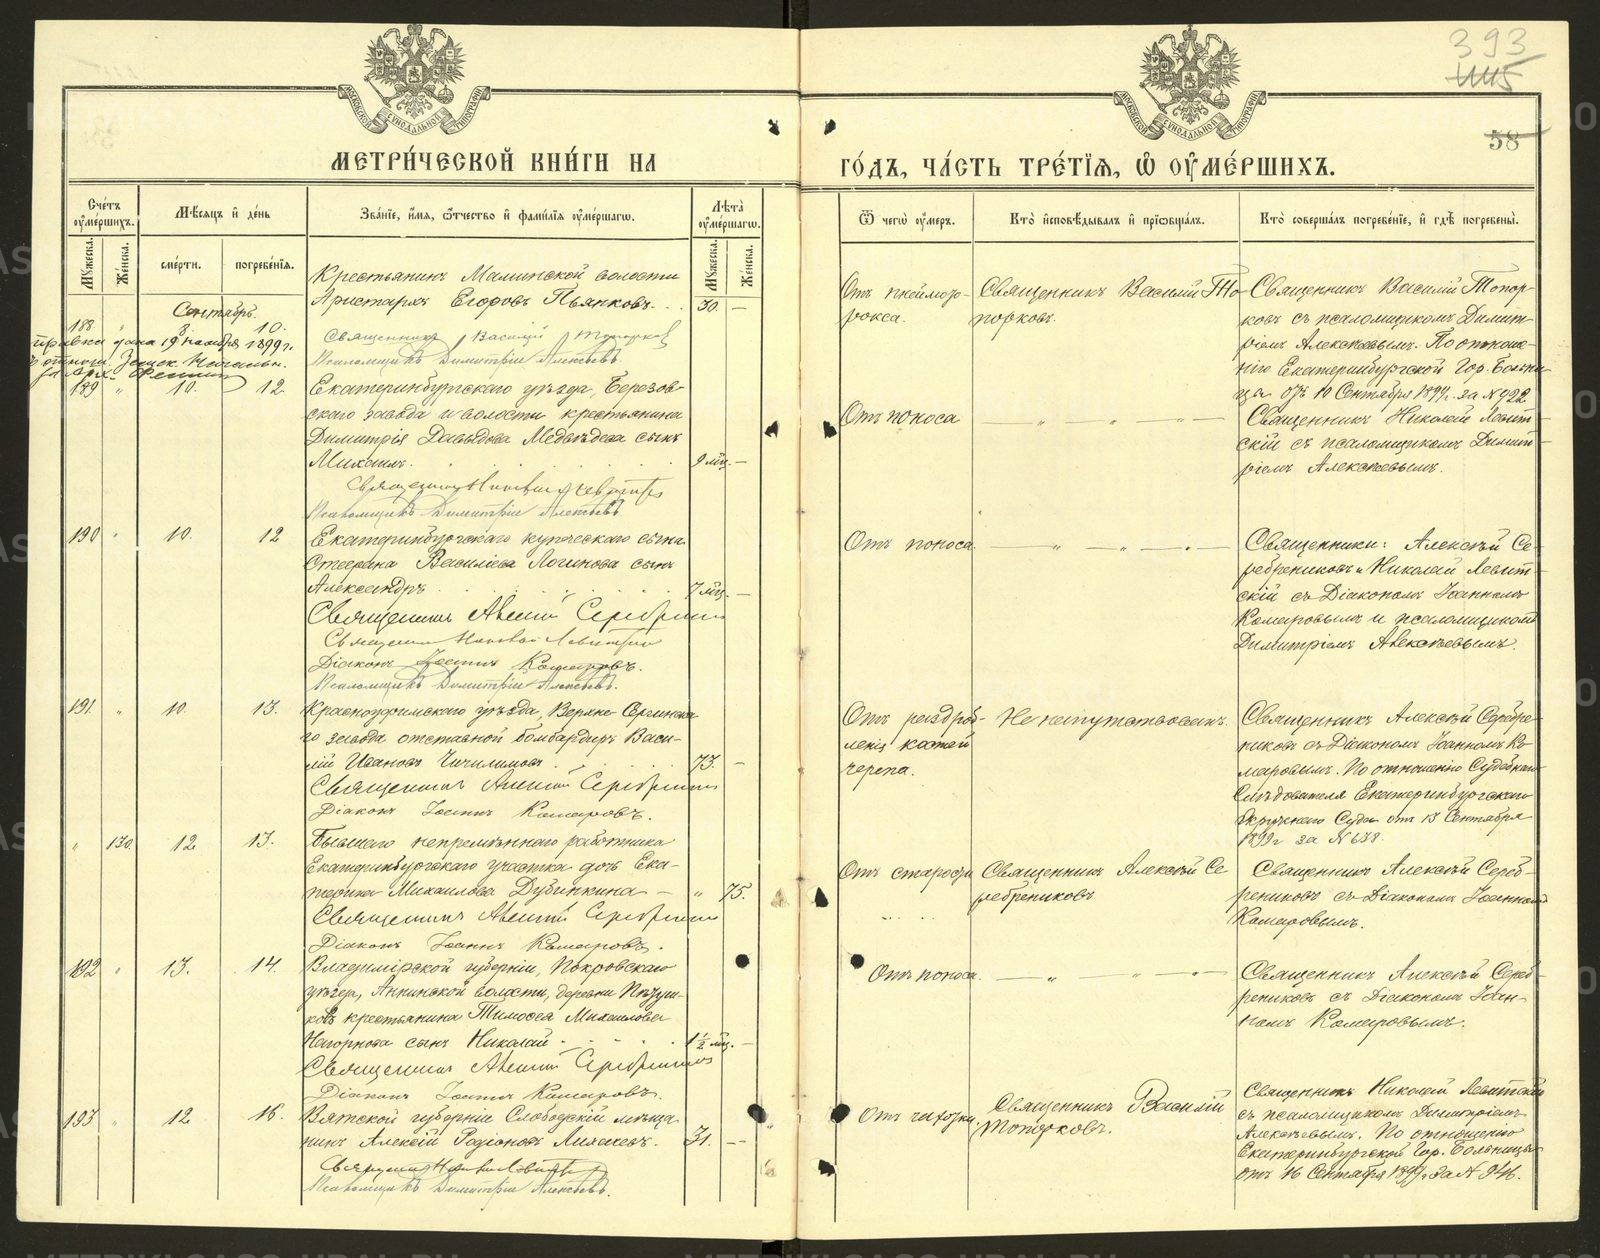 393
58
МОСКОВСКОЙ СѴНОДАЛЬНОЙ ТИПОГРАФІИ
МОСКОВСКОЙ СѴНОДАЛЬНОЙ ТИПОГРАФІИ
МЕТРИ́ЧЕСКОЙ КНИ́ГИ НА
ГО́ДЪ, ЧА́СТЬ ТРЕ́ТІѦ, Ѡ҆ ОУ҆МЕ́РШИХЪ.
Сче́тъ оу҆ме́ршихъ.
Мꙋжеска.
Же́нска.
Мѣ́сяцъ и҆ де́нь
сме́рти.
погребе́нїѧ.
Зва́нїе, и҆́мѧ, ѻ҆́тчество и҆ фами́лїѧ оу҆ме́ршагѡ.
Лѣ́та оу҆ме́ршагѡ.
Мꙋжеска.
Же́нска.
Ѿ чегѡ̀ оу҆́меръ.
Кто̀ и҆сповѣ́дывалъ и҆ прїѡбща́лъ.
Кто̀ соверша́лъ погребе́нїе, и҆ гдѣ̀ погребены̀.
Сентябрь.
188 " 8. 10.
Крестьянинъ Маминской волости
Аристархъ Егоровъ Пьянковъ. 30. —
Священникъ Василій Топорков
Псаломщикъ Димитрій Алексѣевъ.
Священникъ Василій Топорковъ.
Священникъ Василій Топорковъ съ псаломщикомъ Димитріемъ Алексѣевымъ. По отношенію Екатеринбургской Гор. Больницы отъ 10 Сентября 1899 г. за № 922
дана 19 ноября 1899 г.
189 " 10. 12.
Екатеринбургскаго уѣзда, Березовскаго завода и волости крестьянина
Димитрія Давыдова Медвѣдева сынъ
Михаилъ. 9 мѣц. —
Священникъ Николай Левитскій
Псаломщикъ Димитрій Алексѣевъ
Отъ поноса
Священникъ Николай Левитскій съ псаломщикомъ Димитріемъ Алексѣевымъ.
190 " 10. 12
Екатеринбургскаго купеческаго сына
Стефана Василіева Логинова сынъ
Александръ 7 мѣц. —
Священникъ Алексій Серебрениковъ
Священникъ Николай Левитскій
Діаконъ Іоаннъ Комаровъ.
Псаломщикъ Димитрій Алексѣевъ.
Отъ поноса.
Священники: Алексѣй Серебрениковъ и Николай Левитскій съ Діакономъ Іоанномъ
Комаровымъ и псаломщикомъ
Димитріемъ Алексѣевымъ.
191. " 10. 13.
Красноуфимскаго уѣзда, Верхне-Сергинскаго завода отставной бомбардиръ Василій Ивановъ 73. —
Священникъ Алексій Серебрениковъ
Діаконъ Іоаннъ Комаровъ.
Отъ раздробленія костей
черепа.
Не напутствованъ.
Священникъ Алексѣй Серебрениковъ съ Діакономъ Іоанномъ Комаровымъ. По отношенію Судебнаго
Слѣдователя Екатеринбургскаго
Окружнаго Суда отъ 13 Сентября
1899 г за № 638.
" 130. 12 13.
Бывшаго непремѣннаго работника
Екатеринбургскаго участка дочь Екатерина Михаилова Дубинкина — " 75.
Священникъ Алексій Серебрениковъ
Діаконъ Іоаннъ Комаровъ.
Отъ старости
Священникъ Алексѣй Серебрениковъ
Священникъ Алексѣй Серебрениковъ съ Діакономъ Іоанномъ
Комаровымъ.
192 " 13. 14.
Владимірской губерніи, Покровскаго
уѣзда, Аннинской волости, деревни
крестьянина Тимофея Михаилова
Нагорнова сынъ Николай 1 ½ мѣц. —
Священникъ Алексій Серебрениковъ
Діаконъ Іоаннъ Комаровъ.
Отъ поноса.
Священникъ Алексѣй Серебрениковъ съ Діакономъ Іоанномъ Комаровымъ.
193 " 12 16.
Вятской губерніи Слободскій мѣщанинъ Алексѣй Родіоновъ 31. —
Священникъ Николай Левитскій
Псаломщикъ Димитрій Алексѣевъ.
Отъ чахотки.
Священникъ Василій
Топорковъ.
Священникъ Николай Левитскій
съ псаломщикомъ Димитріемъ
Алексѣевымъ. По отношенію
Екатеринбургской Гор. Больницы
отъ 16 Сентября 1899 г. за № 946.